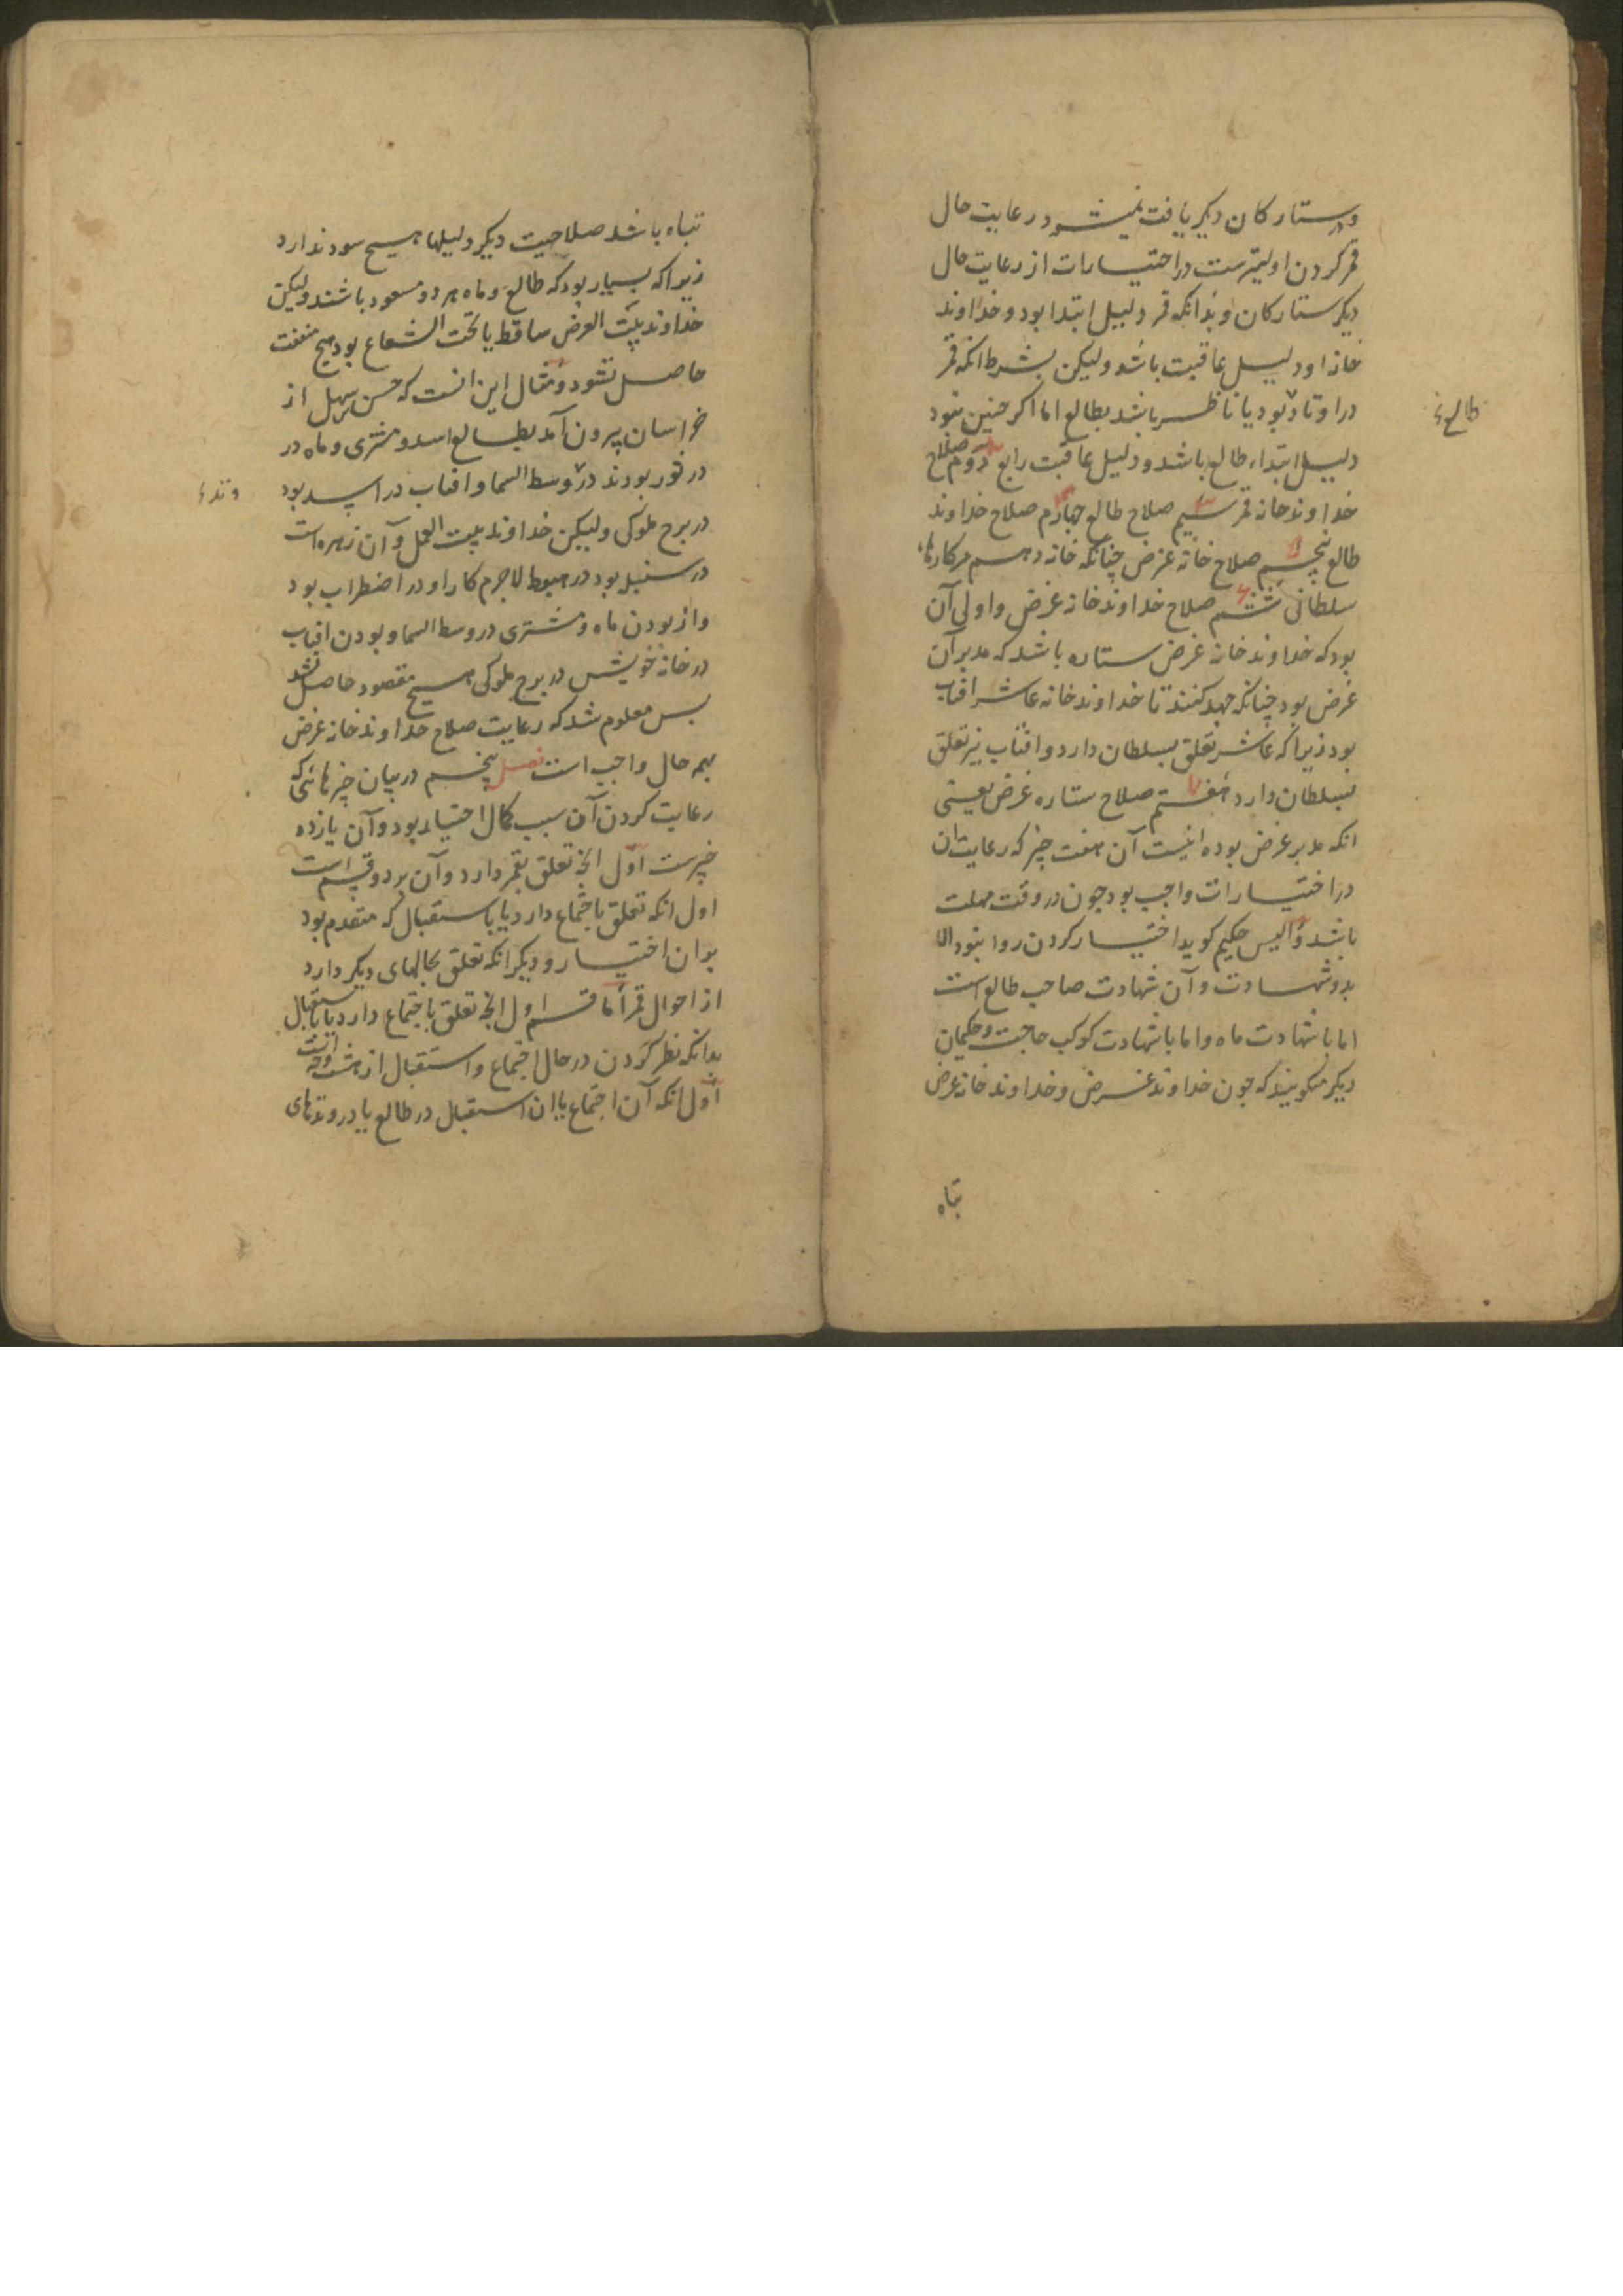 و ستارکان دیکر یافت نمیشود رعایت حال
قمر کردن اولیترست در اختیارات از رعایت حال
دیکر ستارکان و بدانکه قمر دلیل ابتدا بود و خداوند
خانه او دلیل عاقبت باشد ولیکن بشرط انکه قمر
در اوتاد بود یا ناظر باشد بطالع اما اکر چنین نبود
طالع
دلیل ابتداء طالع باشد و دلیل عاقبت رابع دوم صلاح
خداوند خانه قمر سیم صلاح طالع چهارم صلاح خداوند
طالع پنجم صلاح خانه غرض چنانکه خانه دهم مر کارهاء
سلطانی ششم صلاح خداوند خانه غرض و اولی آن
بود که خداوند خانه غرض ستاره باشد که مدبر آن
غرض بود چنانکه جهد کنند تا خداوند خانه عاشر افتاب
بود زیرا که عاشر تعلق بسلطان دارد و افتاب نیز تعلق
بسلطان دارد هفتم صلاح ستاره غرض یعنی
انکه مدبر غرض بوده اینست آن هفت چیز که رعایت ان
در اختیارات واجب بود چون در وقت مهلت
باشد و الیس حکیم کوید اختیار کردن روا نبود الا
بدو شهادت و آن شهادت صاحب طالع است
اما با شهادت ماه و اما با شهادت کوکب حاجت و حکیمان
دیکر میکویند که چون خداوند غرض و خداوند خانه غرض
تباه
تباه باشد صلاحیت دیکر دلیلها هیچ سود ندارد
زیرا که بسیار بود که طالع و ماه هر دو مسعود باشند ولیکن
خداوند بیت الغرض ساقط یا تحت الشعاع بود هیچ منفعت
حاصل نشود و مثال این انست که حسن سهل از
خراسان بیرون آمد بطالع اسد و مشتری و ماه در
در ثور بودند در وسط السما و افتاب در اسد بود
وتد
در برج ملوکی ولیکن خداوند بیت العمل و آن زهره است
در سنبله بود در هبوط لاجرم کار او در اضطراب بود
و از بودن ماه و مشتری در وسط السما و بودن افتاب
در خانه خویش در برج ملوکی هیچ مقصود حاصل نشد
بس معلوم شد که رعایت صلاح خداوند خانه غرض
بهمه حال واجب است فصل پنجم در بیان چیزهائی که
رعایت کردن آن سبب کمال اختیار بود و آن یازده
چیزست اول انچه تعلق بقمر دارد و آن بر دو قسم است
اول انکه تعلق باجتماع دارد یا باستقبال که متقدم بود
بران اختیار و دیکر انکه تعلق بحالهای دیکر دارد
از احوال قمر اما قسم اول انچه تعلق باجتماع دارد یا باستقبال
بدانکه نظر کردن در حال اجتماع و استقبال از هشت وجه است
اول انکه آن اجتماع یا ان استقبال در طالع یا در وتدهای